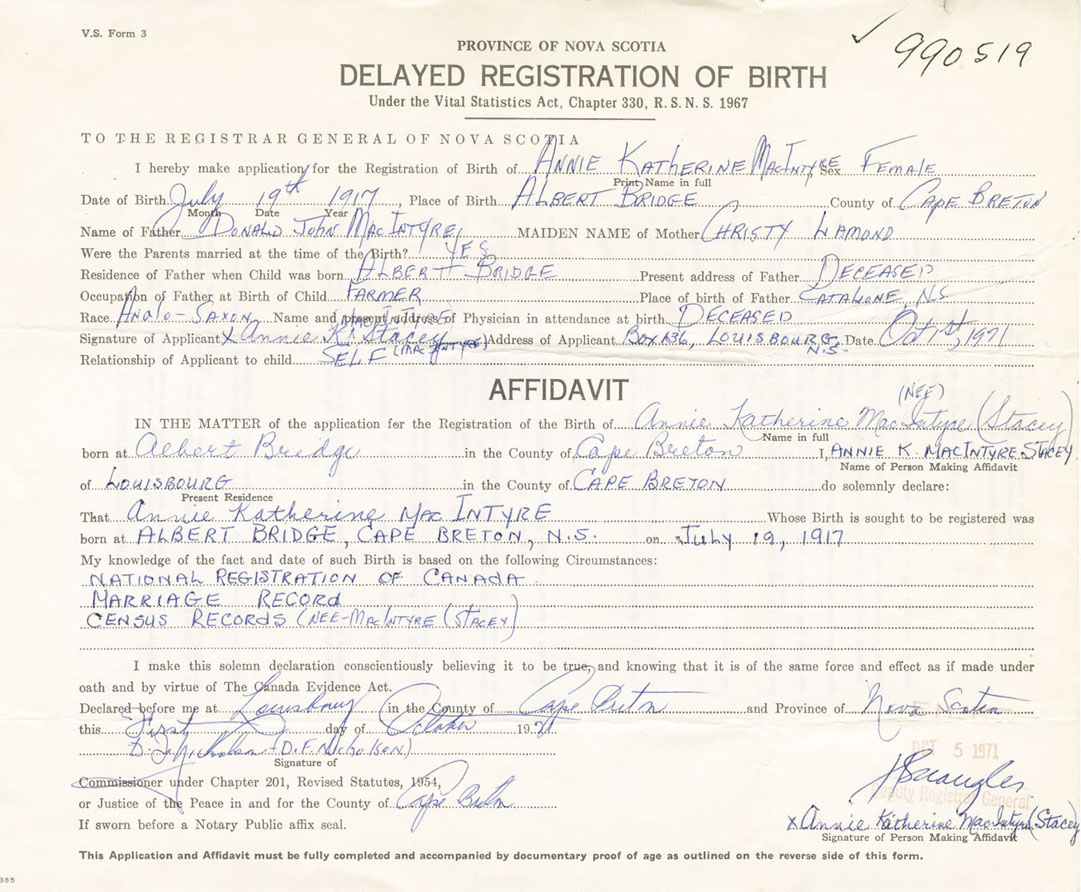 V.S. Form 3
✓ 990519
PROVINCE OF NOVA SCOTIA
DELAYED REGISTRATION OF BIRTH
Under the Vital Statistics Act, Chapter 330, R. S. N. S. 1967
TO THE REGISTRAR GENERAL OF NOVA SCOTIA
I hereby make application for the Registration of Birth of ANNIE KATHERINE MACINTYRE Sex FEMALE
Print Name in full
Date of Birth July 19th 1917, Place of Birth ALBERT BRIDGE County of CAPE BRETON
Month Date Year
Name of Father DONALD JOHN MACINTYRE MAIDEN NAME of Mother CHRISTY LAMOND
Were the Parents married at the time of the Birth? YES
Residence of Father when Child was born ALBERT BRIDGE Present address of Father DECEASED
Occupation of Father at Birth of Child FARMER Place of birth of Father CATALONE, N.S.
Race ANGLO-SAXON Name and present address of Physician in attendance at birth DECEASED
Signature of Applicant X Annie K. Stacey (MACINTYRE) Address of Applicant BOX 136, LOUISBOURG, N.S. Date Oct 1st, 1971
Relationship of Applicant to child SELF
AFFIDAVIT
(NEE)
IN THE MATTER of the application for the Registration of the Birth of Annie Katherine MacIntyre (Stacey)
Name in full
born at Albert Bridge in the County of Cape Breton I, ANNIE K. MACINTYRE STACEY
Name of Person Making Affidavit
of LOUISBOURG in the County of CAPE BRETON do solemnly declare:
Present Residence
That Annie Katherine MAC INTYRE Whose Birth is sought to be registered was
born at ALBERT BRIDGE, CAPE BRETON, N.S. on July 19, 1917
My knowledge of the fact and date of such Birth is based on the following Circumstances:
NATIONAL REGISTRATION OF CANADA
MARRIAGE RECORD
CENSUS RECORDS (NEE-MACINTYRE (STACEY)
I make this solemn declaration conscientiously believing it to be true, and knowing that it is of the same force and effect as if made under
oath and by virtue of The Canada Evidence Act.
Declared before me at Louisbourg in the County of Cape Breton and Province of Nova Scotia
this First day of October 1971
OCT 5 1971
D. F. Nicholson (D.F. NICHOLSON)
Signature of
Commissioner under Chapter 201, Revised Statutes, 1954,
Deputy Registrar General
or Justice of the Peace in and for the County of Cape Breton
X Annie Katherine MacIntyre (Stacey)
If sworn before a Notary Public affix seal.
Signature of Person Making Affidavit
This Application and Affidavit must be fully completed and accompanied by documentary proof of age as outlined on the reverse side of this form.
985